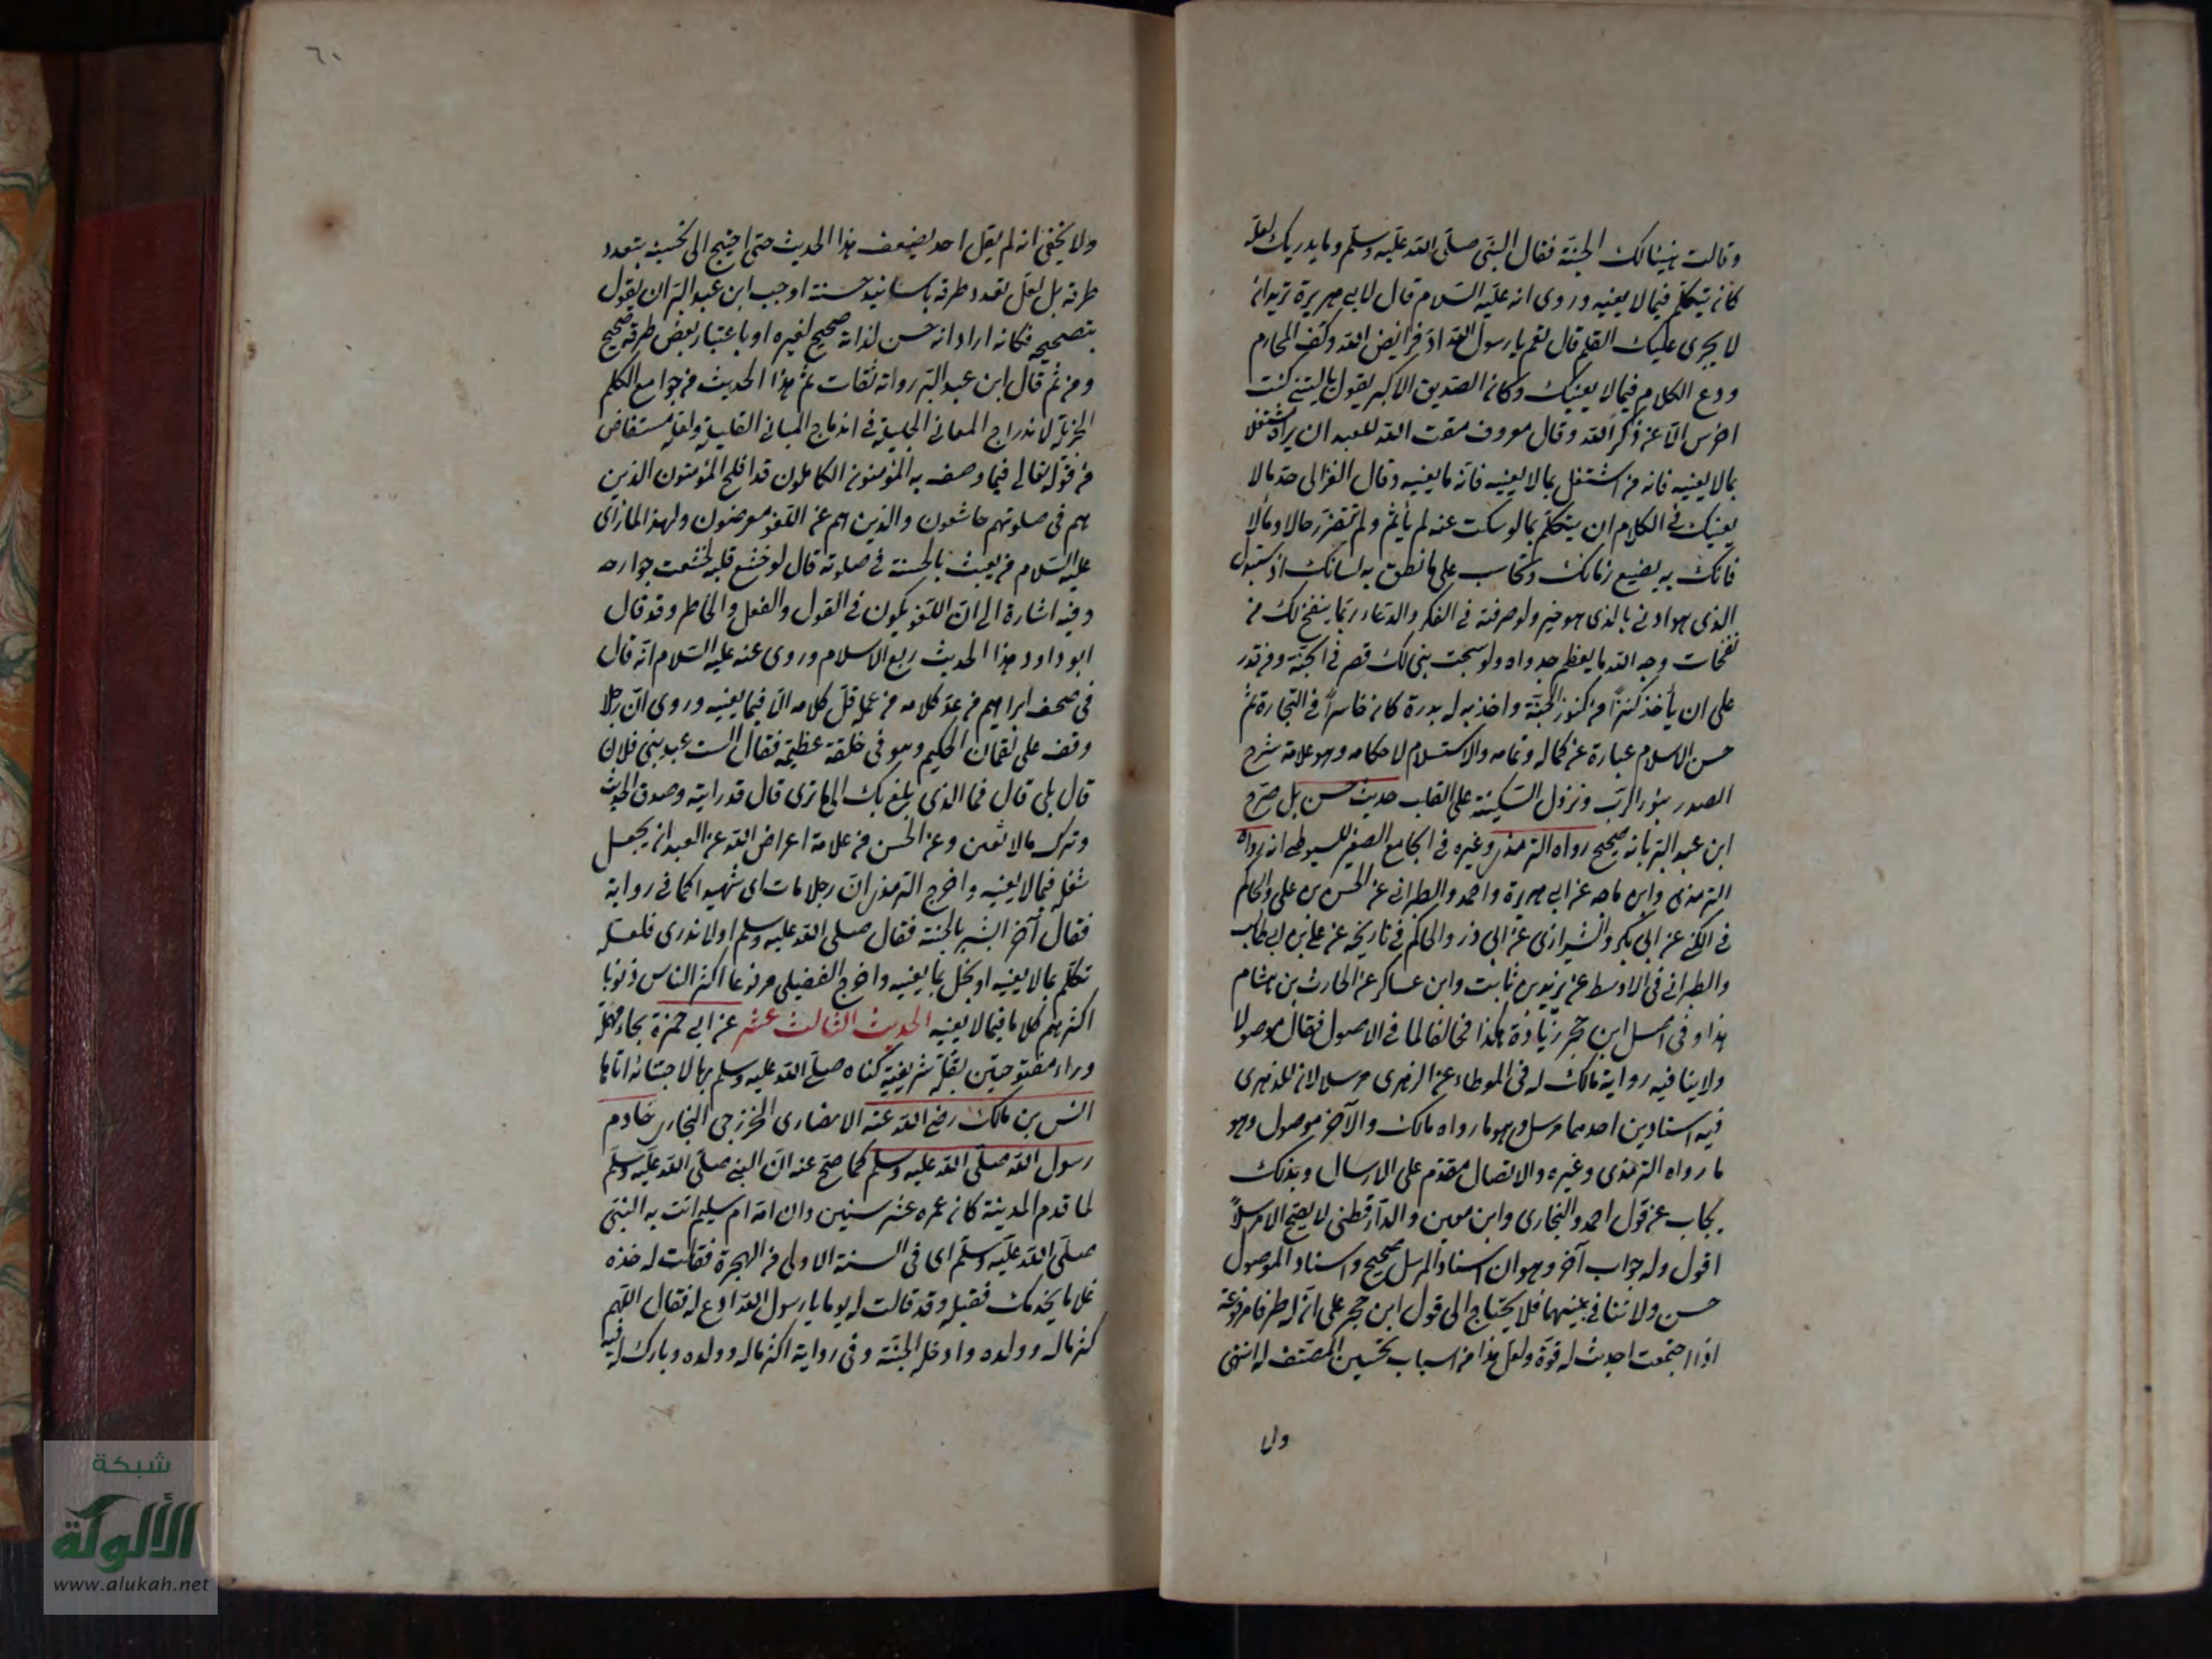 وقالت هنيئا لك الجنة فقال النبي صلى الله عليه وسلم وما يدريك لعله
كان يتكلم فيما لا يعنيه وروى انه عليه السلام قال لابي هريرة تريد ان
لا يجرى عليك القلم قال نعم يا رسول الله اد فرايض الله وكف المحارم
ودع الكلام فيما لا يعنيك وكان الصديق الاكبر يقول يا ليتنى كنت
اخرس الا عن ذكر الله وقال معروف مقت الله للعبد ان يراه مشتغلا
بما لا يعنيه فانه من اشتغل بما لا يعنيه فاته ما يعنيه وقال الغزالى حد ما لا
يعنيك فى الكلام ان يتكلم بما لو سكت عنه لم يأثم ولم يتضرر حالا ومالا
فانك به يضيع زمانك وتحاسب على ما نطق به لسانك اذ تستبدل
الذى هو ادنى بالذى هو خير ولو صرفته فى الفكر والدعاء ربما ينفتح لك من
نفحات وجه الله ما يعظم جدواه ولو سبحت بنى لك قصر فى الجنة ومن قدر
على ان يأخذ كنزا من كنوز الجنة واخذ به له بدرة كان خاسرا فى التجارة ثم
حسن الاسلام عبارة عن كماله وتمامه والاستسلام لاحكامه وهو علامة شرح
الصدر بنور الرب ونزول السكينة على القلب حديث حسن بل صرح
ابن عبد البر بانه صحيح رواه الترمذى وغيره فى الجامع الصغير للسيوطى انه رواه
الترمذى وابن ماجه عن ابى هريرة واحمد والطبرانى عن الحسن بن على والحاكم
فى الكنى عن ابى بكر والشيرازى عن ابى ذر والحاكم فى تاريخه عن على بن ابى طالب
والطبرانى فى الاوسط عن زيد بن ثابت وابن عساكر عن الحارث بن هشام
هذا وفى اصل ابن حجر زيادة هكذا مخالفا لما فى الاصول فقال موصولا
ولا ينافيه رواية مالك له فى الموطاء عن الزهرى مرسلا لان للزهرى
فيه اسنادين احدهما مرسل وهو ما رواه مالك والآخر موصول وهو
ما رواه الترمذى وغيره والاتصال مقدم على الارسال وبذلك
يجاب عن قول احمد والبخارى وابن معين والدارقطنى لا يصح الا مرسلا
اقول وله جواب آخر وهو ان اسناد المرسل صحيح واسناد الموصول
حسن ولا تنافى بينهما فلا يحتاج الى قول ابن حجر على ان له طرقا مرفوعة
اذا اجتمعت احدث له قوة ولعل هذا من اسباب تحسين المصنف له انتهى
ولا
٦٠
ولا يخفى انه لم يقل احد بضعف هذا الحديث حتى احتيج الى تحسينه بتعدد
طرقه بل لعل تعدد طرقه باسانيد حسنة اوجب ابن عبد البر ان يقول
بتصحيحه فكانه اراد انه حسن لذاته صحيح لغيره او باعتبار بعض طرقه صحيح
ومن ثم قال ابن عبد البر رواته ثقات ثم هذا الحديث من جوامع الكلم
الجزيلة لاندراج المعانى الجليلة فى اندماج المبانى القليلة ولعله مستفاض
من قوله تعالى فيما وصف به المؤمنون الكاملون قد افلح المؤمنون الذين
هم فى صلوتهم خاشعون والذين هم عن اللغو معرضون ولهذا لما رأى
عليه السلام من يعبث بالحسنة فى صلوته قال لو خشع قلبه لخشعت جوارحه
وفيه اشارة الى ان اللغو يكون فى القول والفعل والخاطر وقد قال
ابو داود هذا الحديث ربع الاسلام وروى عنه عليه السلام انه قال
فى صحف ابراهيم من عد كلامه من عمله قل كلامه الا فيما يعنيه وروى ان رجلا
وقف على لقمان الحكيم وهو فى حلقة عظيمة فقال الست عبد بنى فلان
قال بلى قال فما الذى بلغ بك الى ما ترى قال قدر الله وصدق الحديث
وترك ما لا يعنى وعن الحسن من علامة اعراض الله عن العبد ان يجعل
شغله فيما لا يعنيه واخرج الترمذى ان رجلا مات اى شهيدا كما فى رواية
فقال آخر ابشر بالجنة فقال صلى الله عليه وسلم اولا تدرى فلعله
تكلم بما لا يعنيه او بخل بما يغنيه واخرج العقيلى مرفوعا اكثر الناس ذنوبا
اكثرهم كلاما فيما لا يعنيه الحديث الثالث عشر عن ابى حمزة بحاء مهملة
وراء مفتوحتين بقلة شريفية كناه صلى الله عليه وسلم بها لاجتنائه اياها
انس بن مالك رضى الله عنه الانصارى الخزرجى النجارى خادم
رسول الله صلى الله عليه وسلم كما صح عنه ان النبى صلى الله عليه وسلم
لما قدم المدينة كان عمره عشر سنين وان امه ام سليم اتت به النبى
صلى الله عليه وسلم اى فى السنة الاولى من الهجرة فقالت له خذه
غلاما يخدمك فقبله وقد قالت له يوما يا رسول الله ادع له فقال اللهم
كثر ماله وولده وادخله الجنة وفى رواية اكثر ماله وولده وبارك له فيه
شبكة
الألوكة
www.alukah.net